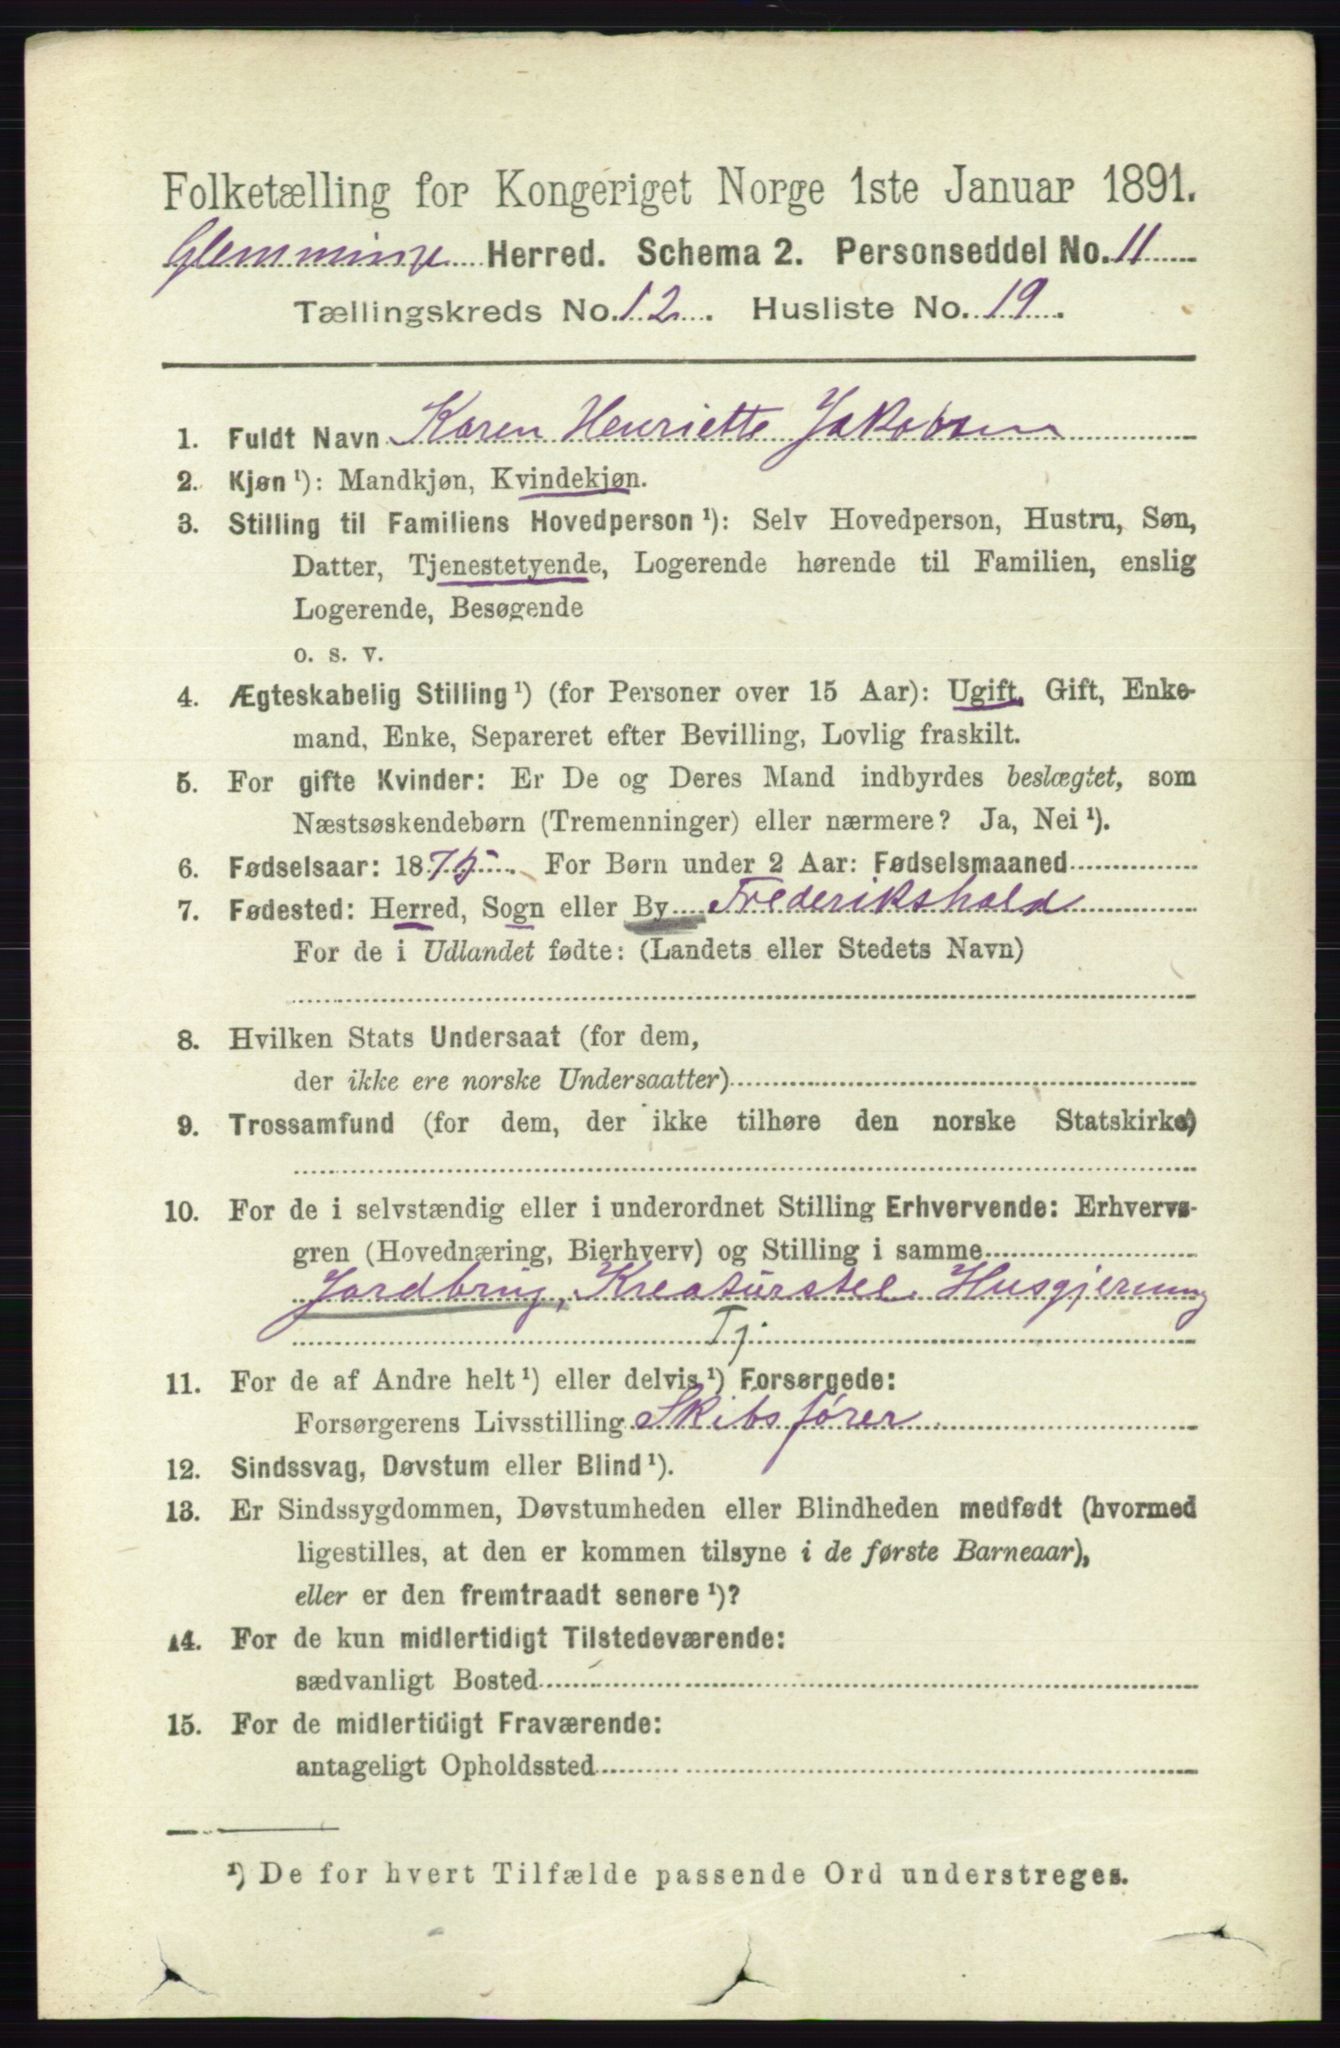 Folketælling for Kongeriget Norge 1ste Januar 1891.
Glemminge Herred. Schema 2. Personseddel No. 11
Tællingskreds No. 12. Husliste No. 19.
1. Fuldt Navn Karen Henriette Jakobsen
2. Kjøn ¹): Mandkjøn, Kvindekjøn.
3. Stilling til Familiens Hovedperson ¹): Selv Hovedperson, Hustru, Søn,
Datter, Tjenestetyende, Logerende hørende til Familien, enslig
Logerende, Besøgende
o. s. v.
4. Ægteskabelig Stilling ¹) (for Personer over 15 Aar): Ugift, Gift, Enke-
mand, Enke, Separeret efter Bevilling, Lovlig fraskilt.
5. For gifte Kvinder: Er De og Deres Mand indbyrdes beslægtet, som
Næstsøskendebørn (Tremenninger) eller nærmere? Ja, Nei ¹).
6. Fødselsaar: 1875. For Børn under 2 Aar: Fødselsmaaned
7. Fødested: Herred, Sogn eller By Frederikshald
For de i Udlandet fødte: (Landets eller Stedets Navn)
8. Hvilken Stats Undersaat (for dem,
der ikke ere norske Undersaatter)
9. Trossamfund (for dem, der ikke tilhøre den norske Statskirke)
10. For de i selvstændig eller i underordnet Stilling Erhvervende: Erhvervs-
gren (Hovednæring, Bierhverv) og Stilling i samme
Jordbrug, Kreaturstel. Husgjerning
Tj.
11. For de af Andre helt ¹) eller delvis ¹) Forsørgede:
Forsørgerens Livsstilling Skibsfører.
12. Sindssvag, Døvstum eller Blind ¹).
13. Er Sindssygdommen, Døvstumheden eller Blindheden medfødt (hvormed
ligestilles, at den er kommen tilsyne i de første Barneaar),
eller er den fremtraadt senere ¹)?
14. For de kun midlertidigt Tilstedeværende:
sædvanligt Bosted
15. For de midlertidigt Fraværende:
antageligt Opholdssted
¹) De for hvert Tilfælde passende Ord understreges.